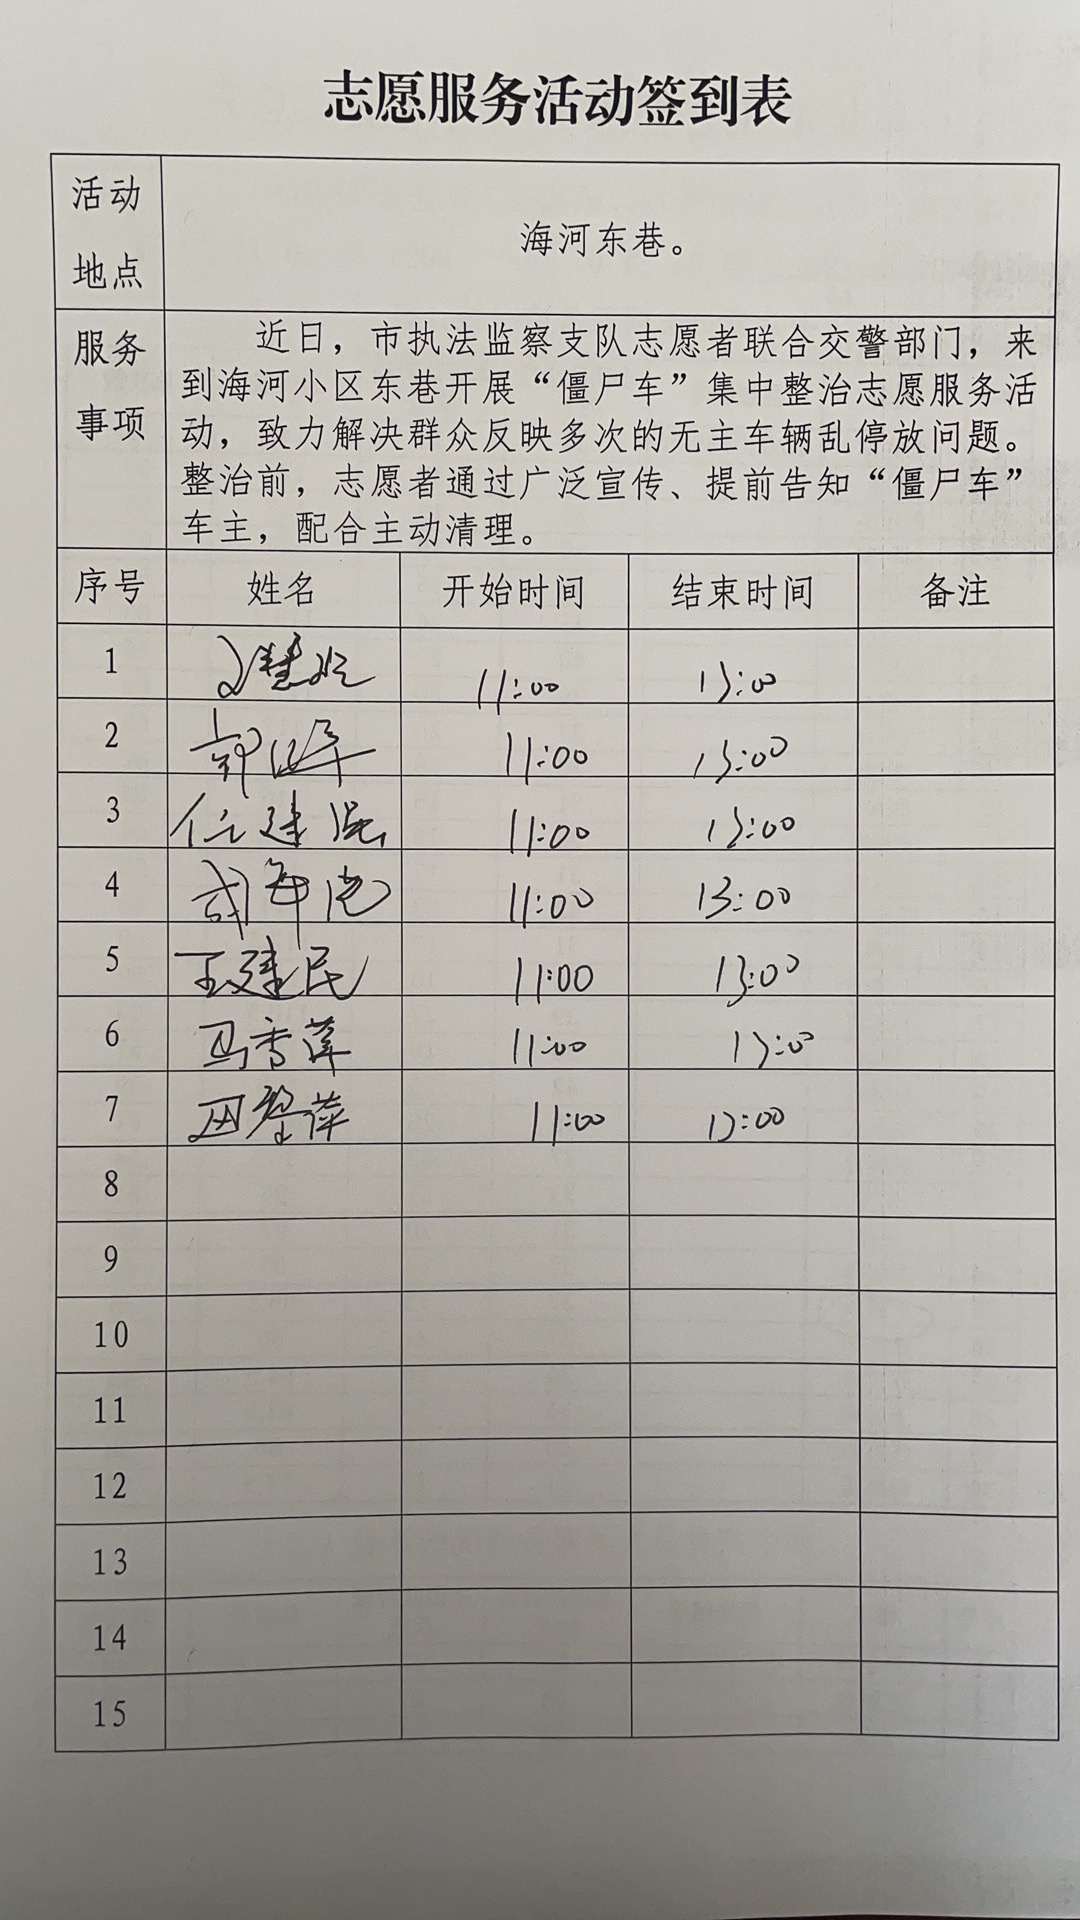 志愿服务活动签到表
活动地点 海河东巷。
服务事项
近日，市执法监察支队志愿者联合交警部门，来
到海河小区东巷开展“僵尸车”集中整治志愿服务活
动，致力解决群众反映多次的无主车辆乱停放问题。
整治前，志愿者通过广泛宣传、提前告知“僵尸车”
车主，配合主动清理。
序号 姓名 开始时间 结束时间 备注
1 11:00 13:00
2 11:00 13:00
3 任建民 11:00 13:00
4 11:00 13:00
5 王建民 11:00 13:00
6 马香莲 11:00 13:00
7 11:00 13:00
8
9
10
11
12
13
14
15